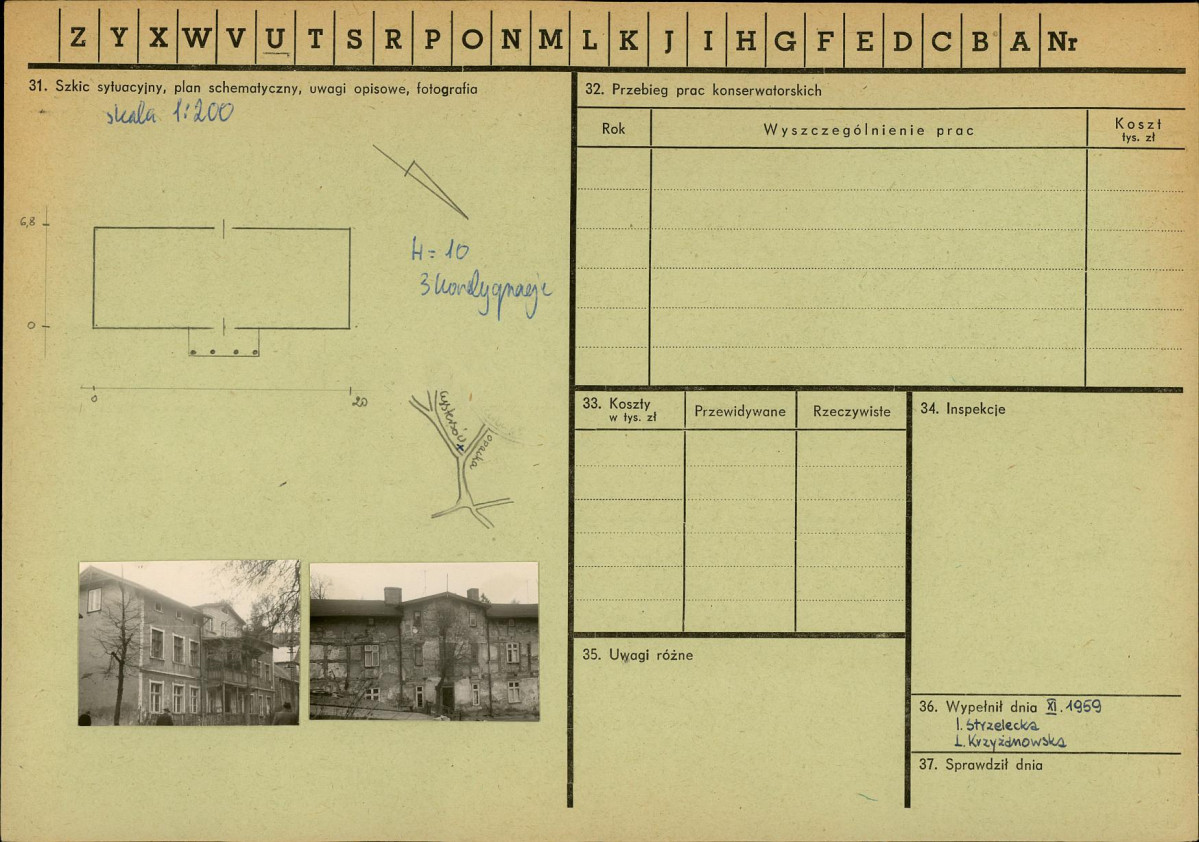 Z Y X W V U T S R P O N M L K J I H G F E D C B A Nr
31. Szkic sytuacyjny, plan schematyczny, uwagi opisowe, fotografia
skala 1:200
6,8
0
H = 10
3 kondygnacje
0
20
Cystersów
Opacka
32. Przebieg prac konserwatorskich
Rok
Wyszczególnienie prac
Koszt
tys. zł
33. Koszty
w tys. zł
Przewidywane
Rzeczywiste
34. Inspekcje
35. Uwagi różne
36. Wypełnił dnia XI. 1959
I. Strzelecka
L. Krzyżanowska
37. Sprawdził dnia